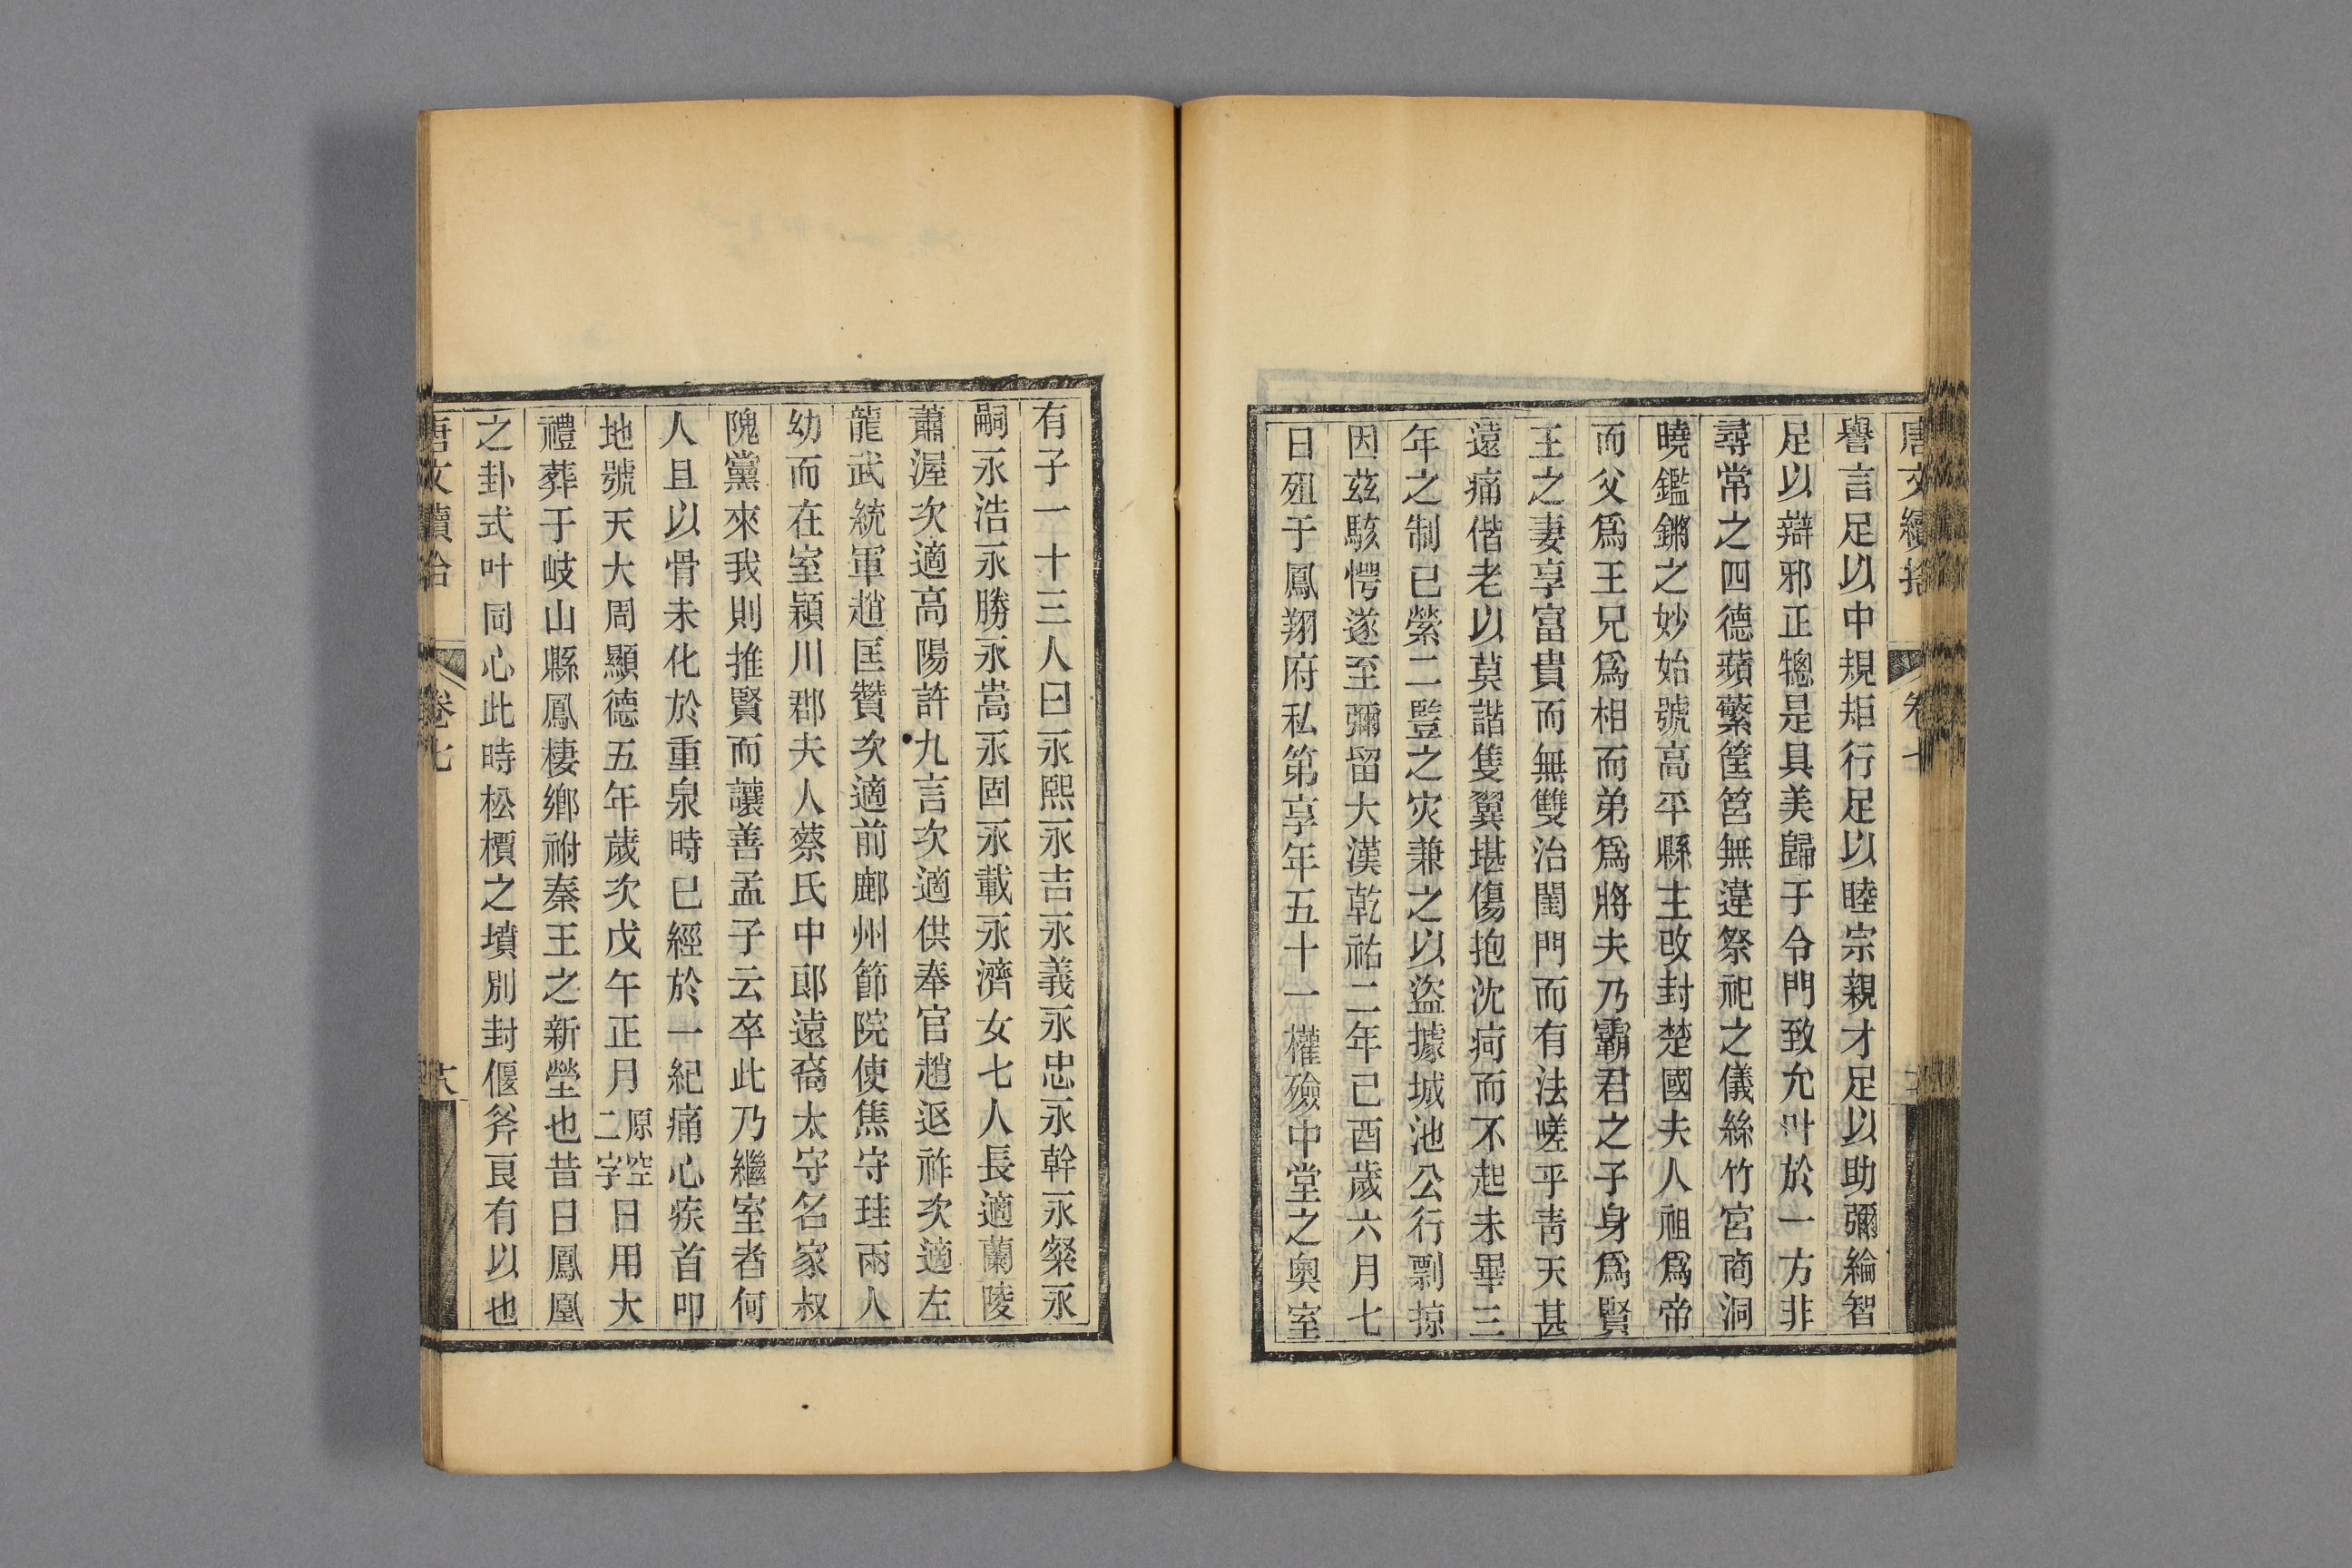 唐文續拾 卷七
譽言足以中規矩行足以睦宗親才足以助彌綸智
足以辯邪正揔是具美歸于令門致允叶於一方非
尋常之四德蘋蘩筐筥無違祭祀之儀絲竹宮商洞
曉鑑鏘之妙始號高平縣主改封楚國夫人祖爲帝
而父爲王兄爲相而弟爲將夫乃霸君之子身爲賢
王之妻享富貴而無雙治閨門而有法嗟乎靑天甚
遠痛偕老以莫諧隻翼堪傷抱沈疴而不起未畢三
年之制已縈二豎之灾兼之以盜據城池公行剽掠
因茲駭愕遂至彌留大漢乾祐二年己酉歲六月七
日殂于鳳翔府私第享年五十一權殮中堂之奧室
有子一十三人曰永熙永吉永義永忠永幹永粲永
嗣永浩永勝永嵩永固永載永濟女七人長適蘭陵
蕭渥次適高陽許九言次適供奉官趙延祚次適左
龍武統軍趙匡贊次適前鄜州節院使焦守珪兩人
幼而在室潁川郡夫人蔡氏中郞遠裔太守名家叔
隗黨來我則推賢而讓善孟子云卒此乃繼室者何
人且以骨未化於重泉時已經於一紀痛心疾首叩
地號天大周顯德五年歲次戊午正月原空二字日用大
禮葬于岐山縣鳳棲鄉祔秦王之新塋也昔日鳳凰
之卦式叶同心此時松檟之墳別封偃斧良有以也
唐文續拾 卷七 十八